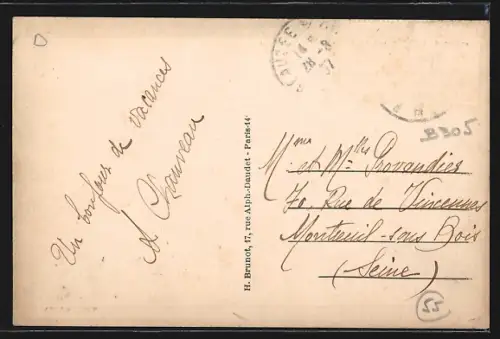 Un bonjour de vacances
A. Chauveau
H. Brunot, 17, rue Alph.-Daudet - Paris-14e
Mme et Mlles Provandier
70, Rue de Vincennes
Montreuil-sous Bois
(Seine)
B305
55